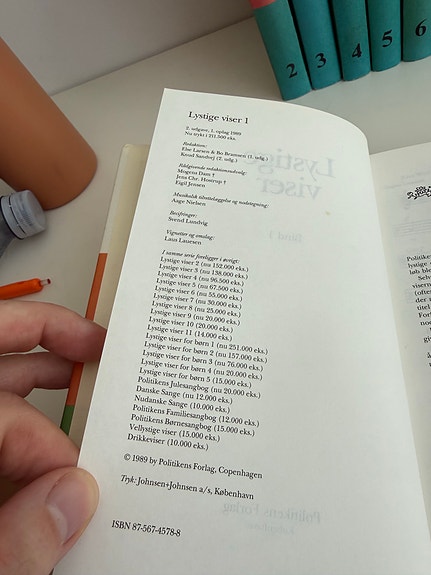 Lystige viser 1
2. udgave, 1. oplag 1989
Nu trykt i 211.500 eks.
Redaktion:
Else Larsen & Bo Bramsen (1. udg.)
Knud Sandvej (2. udg.)
Rådgivende redaktionsudvalg:
Mogens Dam †
Jens Chr. Hostrup †
Eigil Jensen
Musikalsk tilrettelæggelse og nodetegning:
Aage Nielsen
Becifringer:
Svend Lundvig
Vignetter og omslag:
Laus Lauesen
I samme serie foreligger i øvrigt:
Lystige viser 2 (nu 152.000 eks.)
Lystige viser 3 (nu 138.000 eks.)
Lystige viser 4 (nu 96.500 eks.)
Lystige viser 5 (nu 67.500 eks.)
Lystige viser 6 (nu 55.000 eks.)
Lystige viser 7 (nu 30.000 eks.)
Lystige viser 8 (nu 25.000 eks.)
Lystige viser 9 (nu 20.000 eks.)
Lystige viser 10 (20.000 eks.)
Lystige viser 11 (14.000 eks.)
Lystige viser for børn 1 (nu 251.000 eks.)
Lystige viser for børn 2 (nu 157.000 eks.)
Lystige viser for børn 3 (nu 76.000 eks.)
Lystige viser for børn 4 (nu 20.000 eks.)
Lystige viser for børn 5 (15.000 eks.)
Politikens Julesangbog (nu 20.000 eks.)
Danske Sange (nu 12.000 eks.)
Nudanske Sange (10.000 eks.)
Politikens Familiesangbog (12.000 eks.)
Politikens Børnesangbog (15.000 eks.)
Vellystige viser (15.000 eks.)
Drikkeviser (10.000 eks.)
© 1989 by Politikens Forlag, Copenhagen
Tryk: Johnsen+Johnsen a/s, København
ISBN 87-567-4578-8
2
3
4
5
6